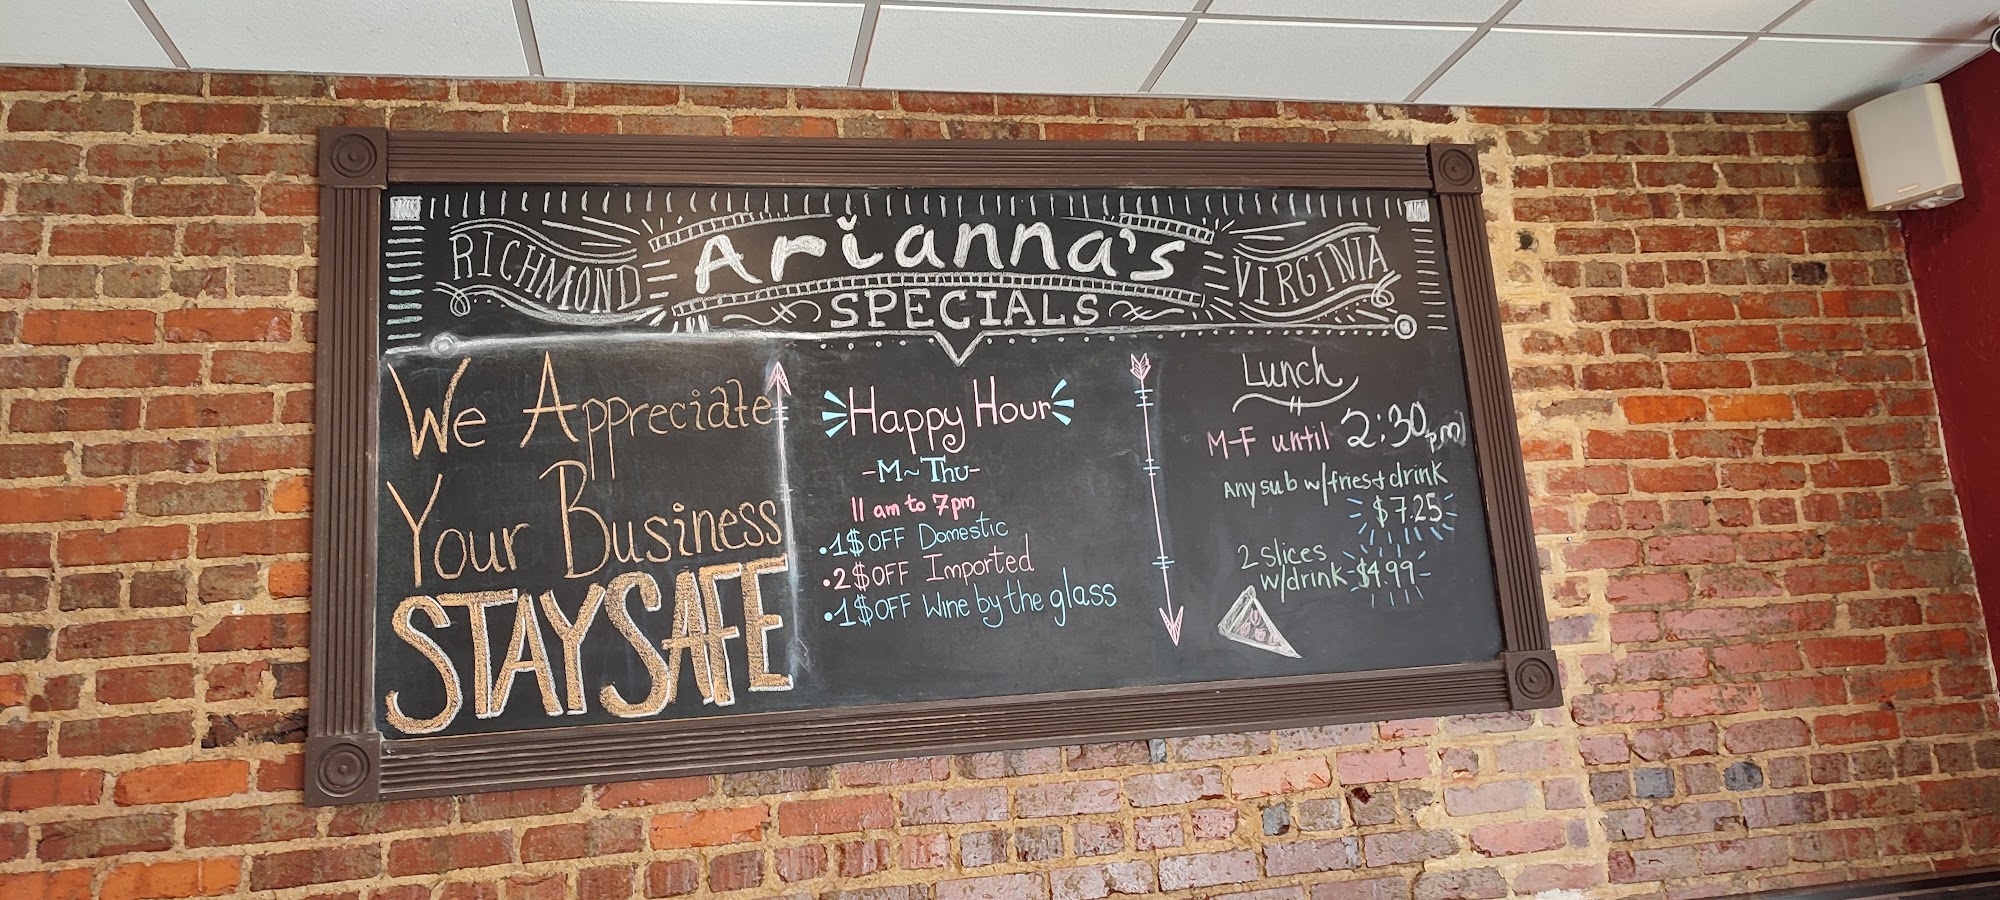 RICHMOND Arianna's VIRGINIA
SPECIALS
We Appreciate
Your Business
STAY SAFE
Happy Hour
-M~Thu-
11 am to 7pm
•1$ OFF Domestic
•2$ OFF Imported
•1$ OFF Wine by the glass
Lunch
M-F until 2:30pm
Any sub w/fries + drink
$7.25
2 slices
w/drink-$4.99-